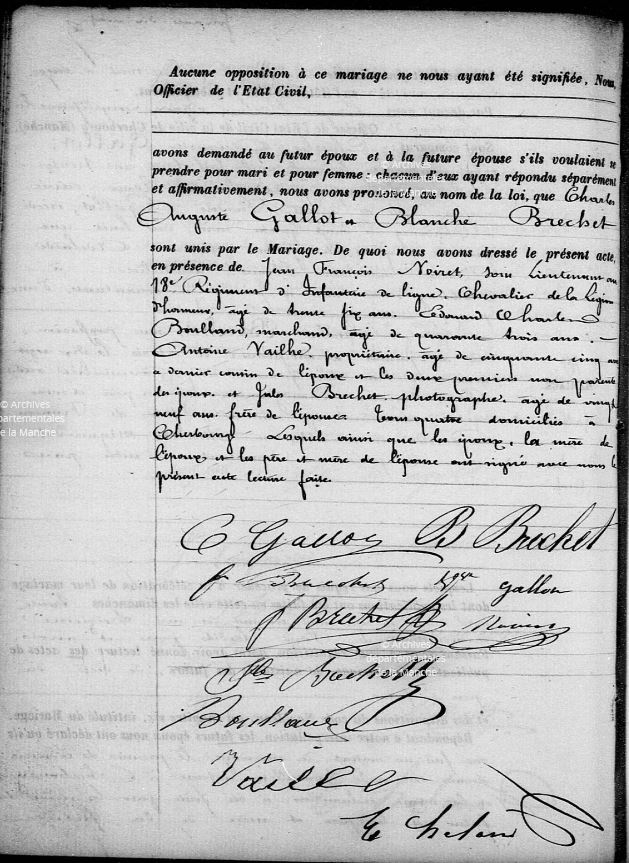 Aucune opposition à ce mariage ne nous ayant été signifiée, Nous,
Officier de l'Etat Civil,
avons demandé au futur époux et à la future épouse s'ils voulaient se
prendre pour mari et pour femme : chacun d'eux ayant répondu séparément
et affirmativement, nous avons prononcé, au nom de la loi, que Charles
Auguste Gallot et Blanche Brechet
sont unis par le Mariage. De quoi nous avons dressé le présent acte,
en présence de Jean François Noiret, sous Lieutenant au
18e Régiment d'Infanterie de ligne, Chevalier de la Légion
d'honneur, âgé de trente six ans. Edouard Charles
Boulland, marchand, âgé de quarante trois ans.
Antoine Vailhé, propriétaire, âgé de cinquante cinq ans
ce dernier cousin de l'époux et les deux premiers non parents
des époux. et Jules Brechet photographe, âgé de vingt
neuf ans. frère de l'épouse. Tous quatre domiciliés à
Cherbourg. Lesquels ainsi que les époux, la mère de
l'époux et les père et mère de l'épouse ont signé avec nous le
présent acte lecture faite.
C Gallot B Brechet
Gallot
Brechet
Jles Brechet
Boulland
Vailhé
© Archives
départementales
de la Manche
© Archives
départementales
de la Manche
© Archives
départementales
de la Manche